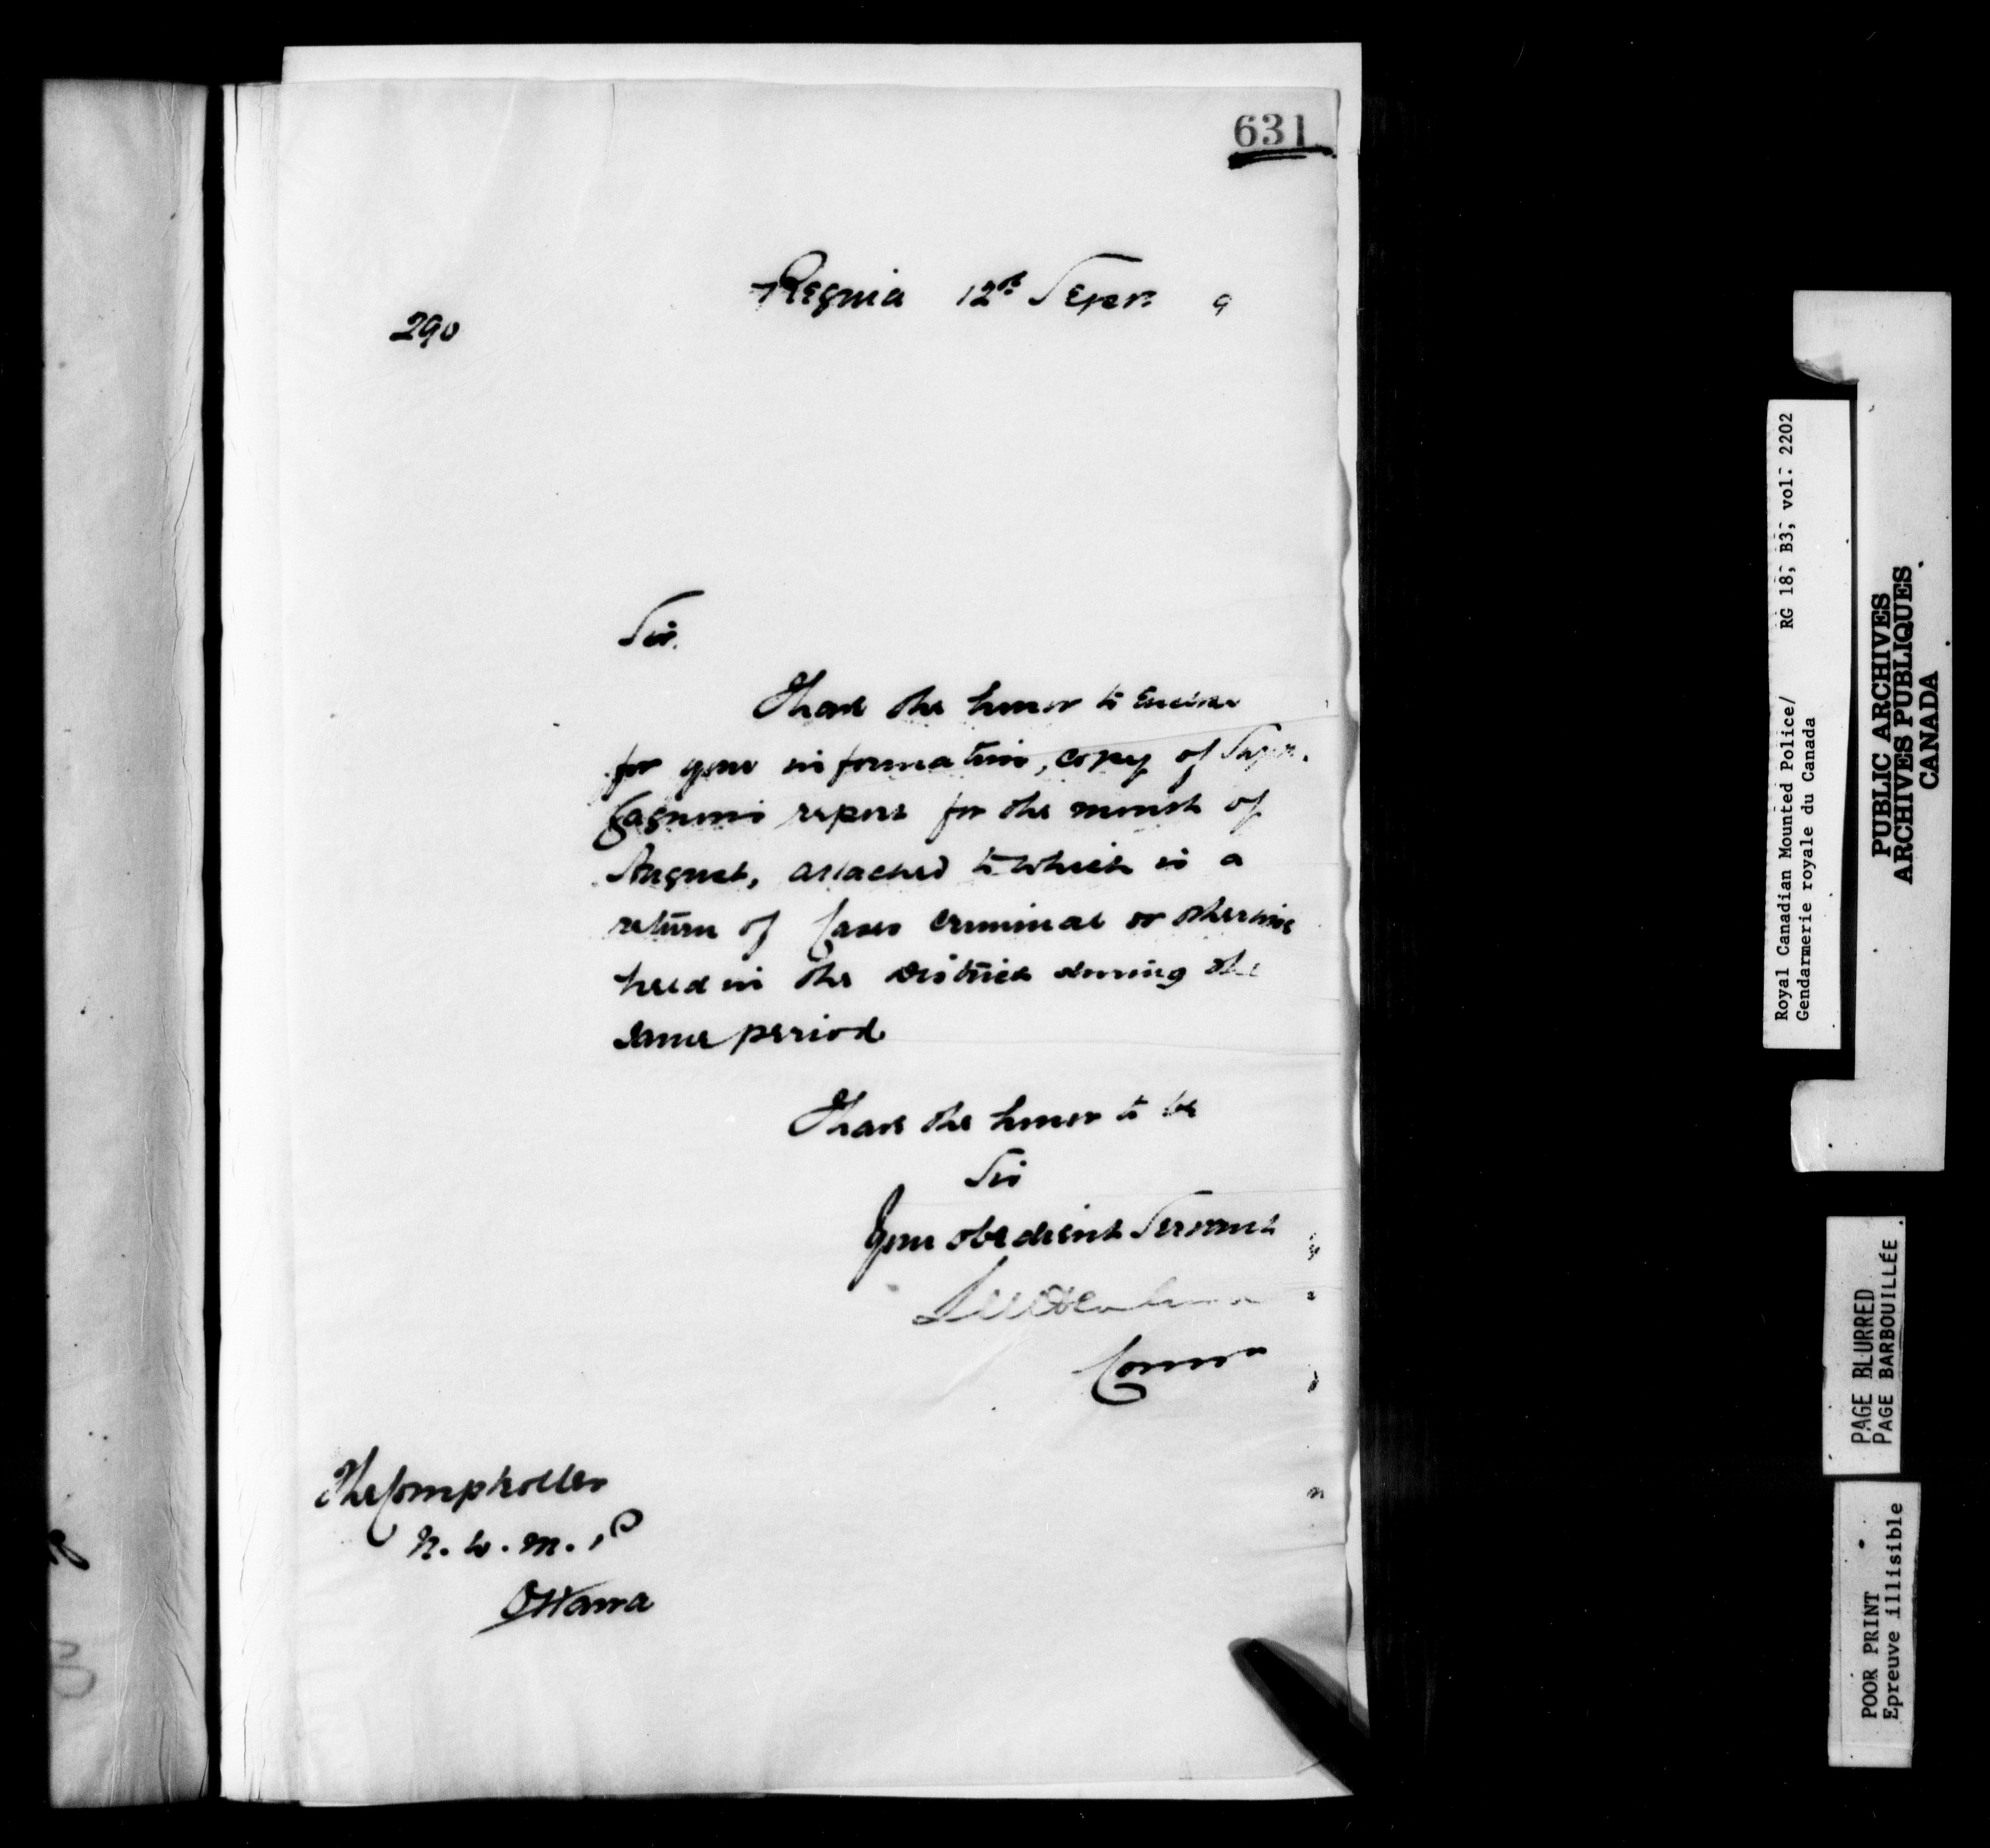 631
Regina 12th Sepr 9
290
Sir.
I have the honor to enclose
for your information, copy of Supt.
Gagnons report for the month of
August, attached to which is a
return of Cases criminal or otherwise
held in the District during the
same period
I have the honor to be
Sir
Your obedient Servant
Commr
The Comptroller
N. W. M. P
Ottawa
Royal Canadian Mounted Police/ RG 18, B3, vol. 2202
Gendarmerie royale du Canada
PUBLIC ARCHIVES
ARCHIVES PUBLIQUES
CANADA
PAGE BLURRED
PAGE BARBOUILLÉE
POOR PRINT
Epreuve illisible